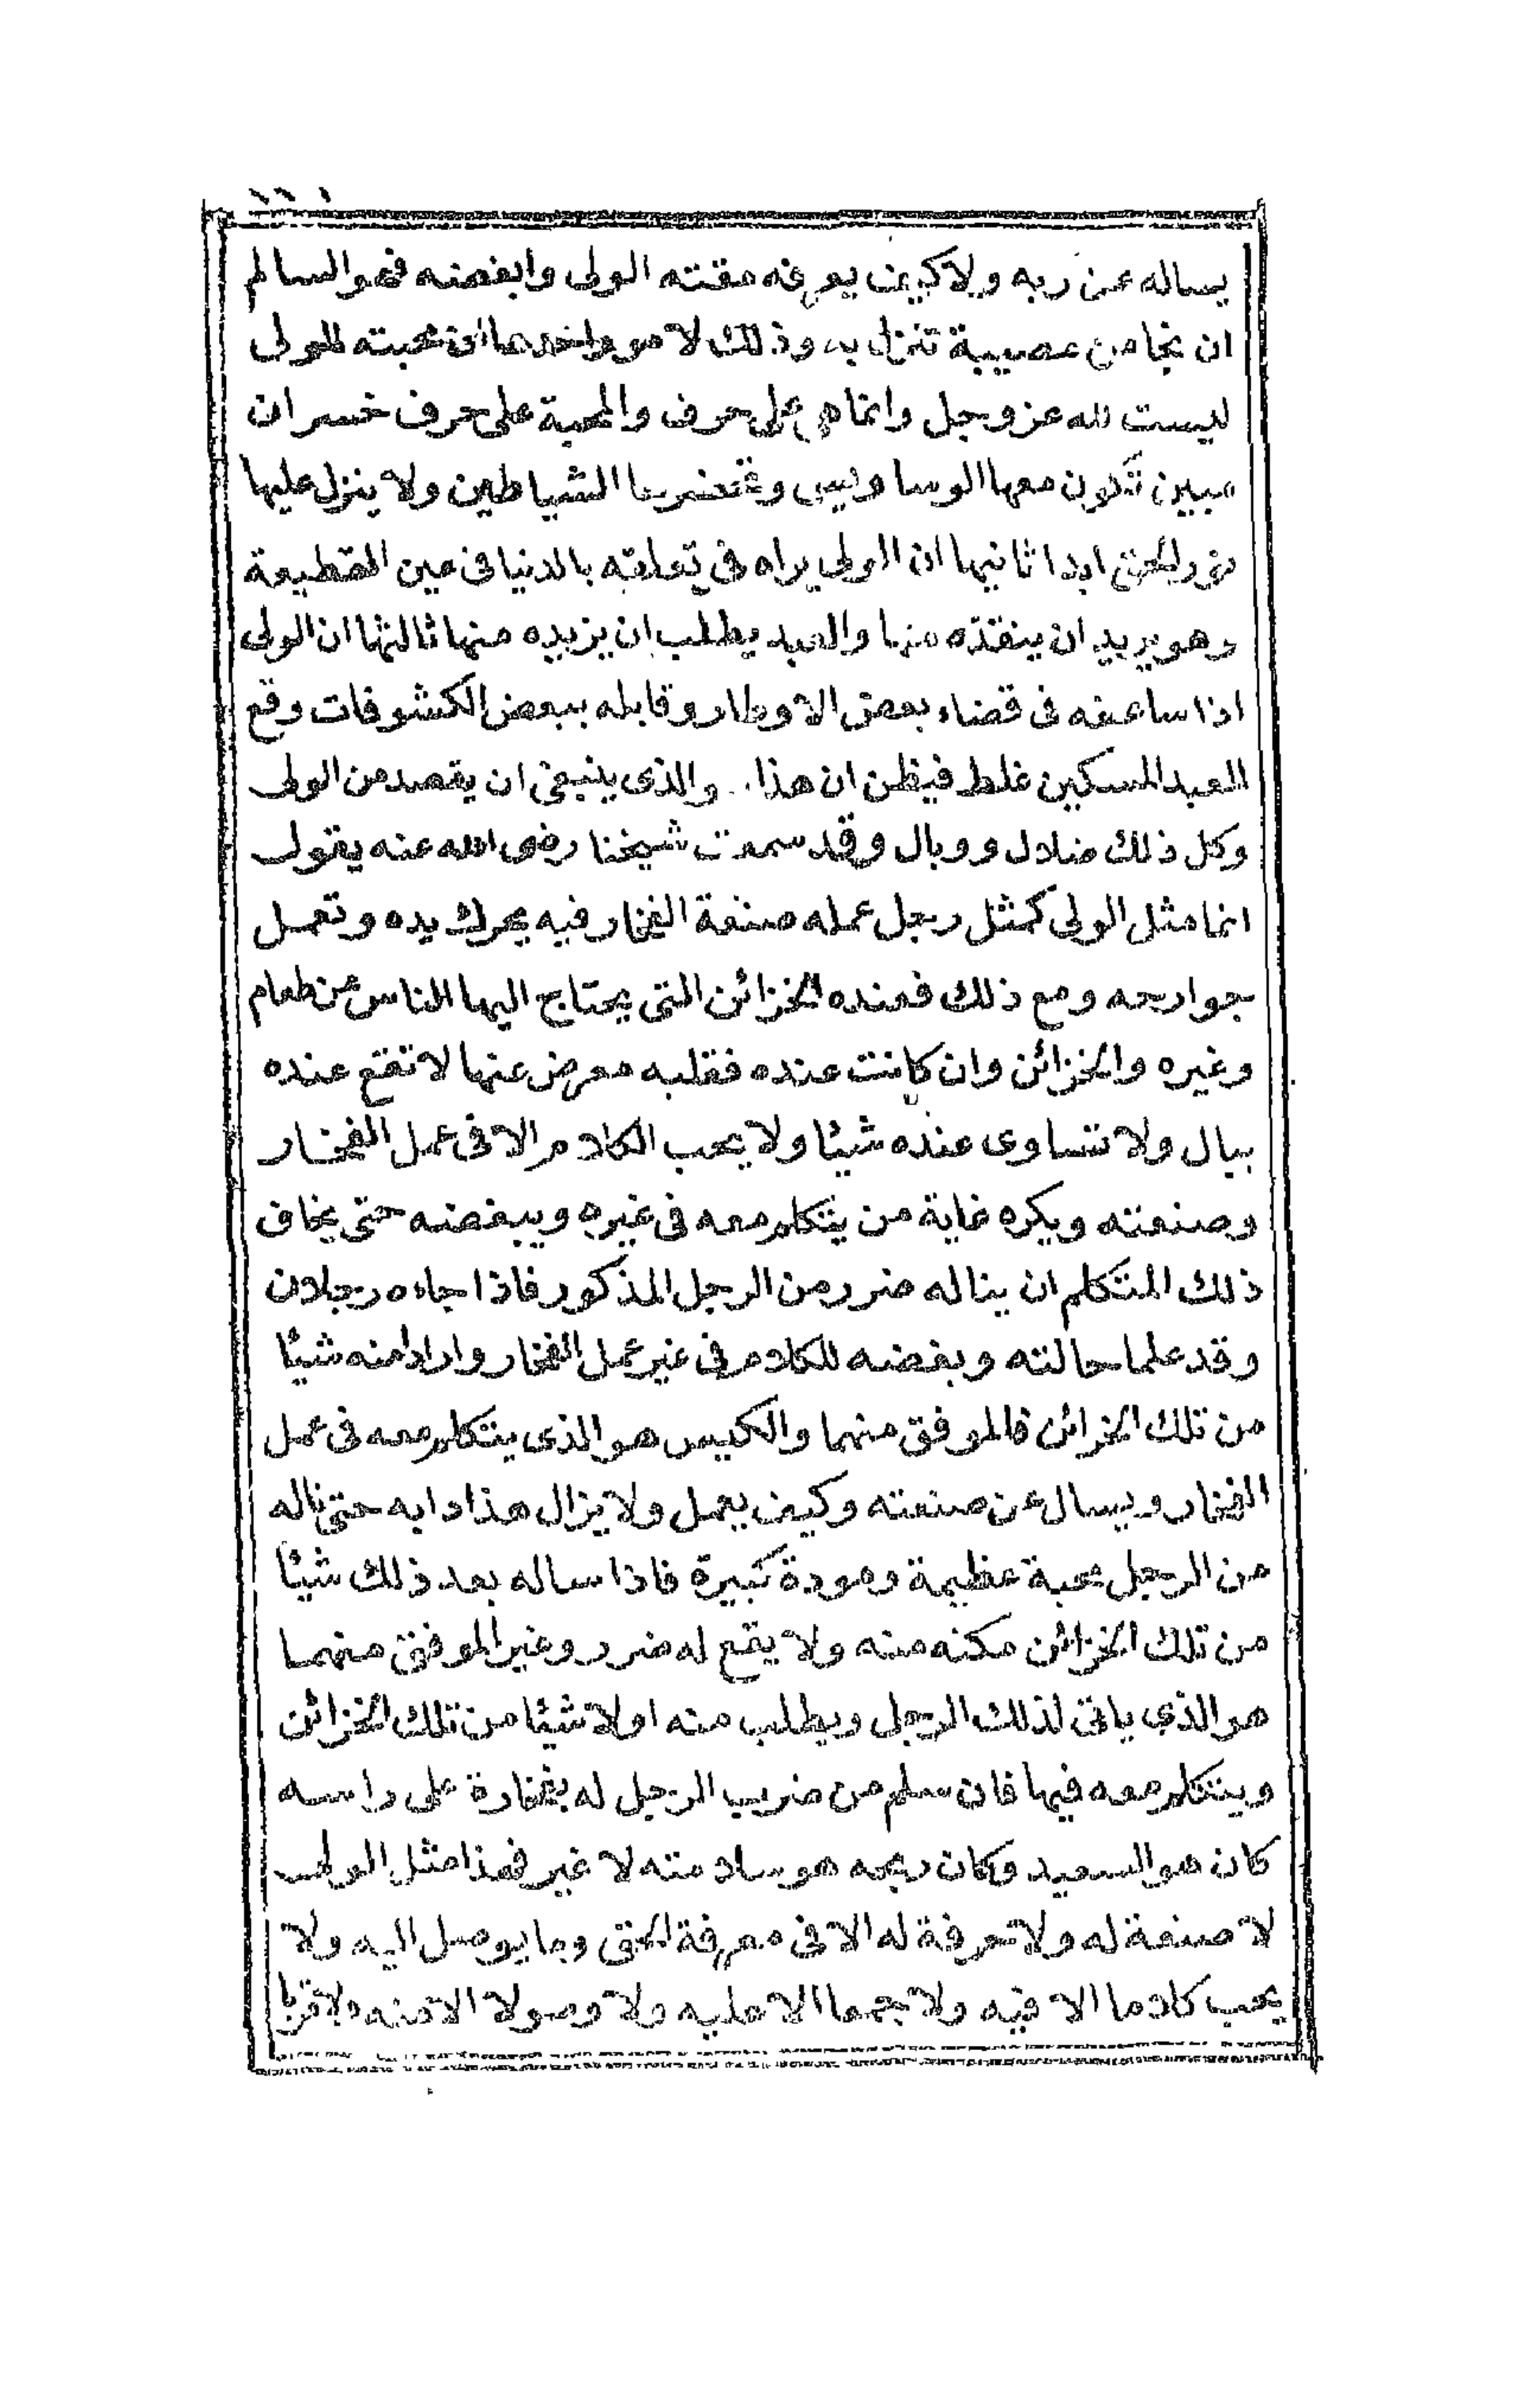 يساله عن ربه ولا كيف يعرفه مقته الولى وابغضه فهو السالم
ان نجا من مصيبة تنزل به وذلك لامور احدها ان محبته للولى
ليست لله عز وجل وانما هى على حرف والمحبة على حرف خسران
مبين تكون معها الوساوس وتحضرها الشياطين ولا ينزل عليها
نور الحق ابدا ثانيها ان الولى يراه فى تعلقه بالدنيا فى عين القطيعة
وهو يريد ان ينقذه منها والعبد يطلب ان يزيده منها ثالثها ان الولى
اذا ساعفه فى قضاء بعض الاوطار وقابله ببعض الكشوفات وقع
للعبد المسكين غلط فيظن ان هذا والذى ينبغى ان يقصد من الولى
وكل ذلك ضلال ووبال وقد سمعت شيخنا رضى الله عنه يقول
انما مثل الولى كمثل رجل عمله صنعة الفخار فيه يحرك يده وتعمل
جوارحه ومع ذلك فعنده الخزائن التى يحتاج اليها الناس من طعام
وغيره والخزائن وان كانت عنده فقلبه معرض عنها لا تقع عنده
ببال ولا تساوى عنده شيئا ولا يحب الكلام الا فى عمل الفخار
وصنعته ويكره غاية من يتكلم معه فى غيره ويبغضه حتى يخاف
ذلك المتكلم ان يناله ضرر من الرجل المذكور فاذا جاءه رجلان
وقد علما حالته وبغضه للكلام فى غير عمل الفخار وارادا منه شيئا
من تلك الخزائن فالموفق منهما والكيس هو الذى يتكلم معه فى عمل
الفخار ويسال عن صنعته وكيف يعمل ولا يزال هذا دابه حتى تناله
من الرجل محبة عظيمة ومودة كبيرة فاذا ساله بعد ذلك شيئا
من تلك الخزائن مكنه منه ولا يقع له ضرر وغير الموفق منهما
هو الذى ياتى لذلك الرجل ويطلب منه اولا شيئا من تلك الخزائن
ويتكلم معه فيها فان سلم من ضرب الرجل له بفخارة على راسه
كان هو السعيد وكان ربحه هو سلامته لا غير فهذا مثل الولى
لا صنعة له ولا حرفة له الا فى معرفة الحق وما يوصل اليه ولا
يحب كلاما الا فيه ولا جمعا الا عليه ولا وصولا الا منه ولا قربا